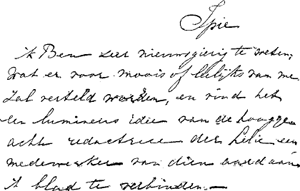 Spie
ik Ben zeer nieuwsgierig te weten,
wat er voor moois of leelijks van me
zal verteld worden, en vind het
een lumineus idee van de hoogge
achte redactrice der Lelie een
medewerker van dien aard aan
'k blad te verbinden.—